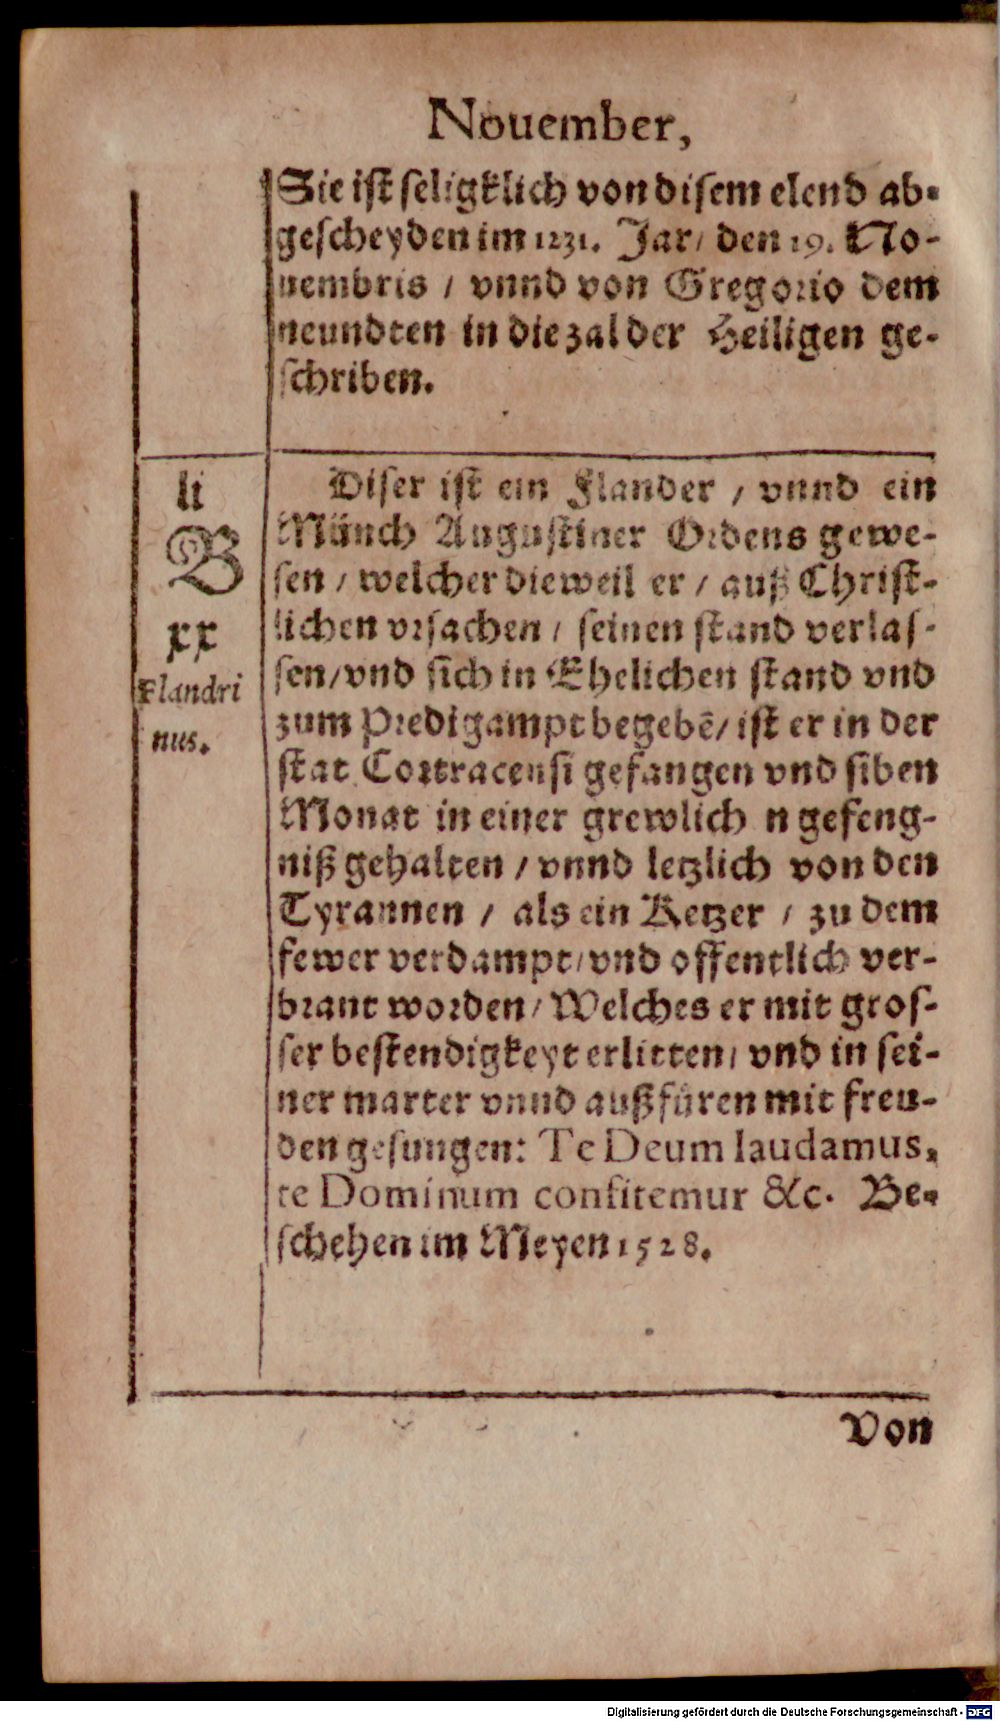 Nouember,
Sie ist seligklich von disem elend ab-
gescheyden im 1231. Jar/ den 19. No-
uembris / vnnd von Gregorio dem
neundten in die zal der Heiligen ge-
schriben.
li
B
xx
Flandri
nus.
Diser ist ein Flander / vnnd ein
Münch Augustiner Ordens gewe-
sen / welcher dieweil er / auß Christ-
lichen vrsachen / seinen stand verlas-
sen/vnd sich in Ehelichen stand vnd
zum Predigampt begebē/ ist er in der
stat Cortracensi gefangen vnd siben
Monat in einer grewlich n gefeng-
niß gehalten / vnnd letzlich von den
Tyrannen / als ein Ketzer / zu dem
fewer verdampt/vnd offentlich ver-
brant worden/ Welches er mit gros-
ser bestendigkeyt erlitten/ vnd in sei-
ner marter vnnd außfüren mit freu-
den gesungen: Te Deum laudamus,
te Dominum confitemur &c. Be-
schehen im Meyen 1528.
Von
Digitalisierung gefördert durch die Deutsche Forschungsgemeinschaft - DFG